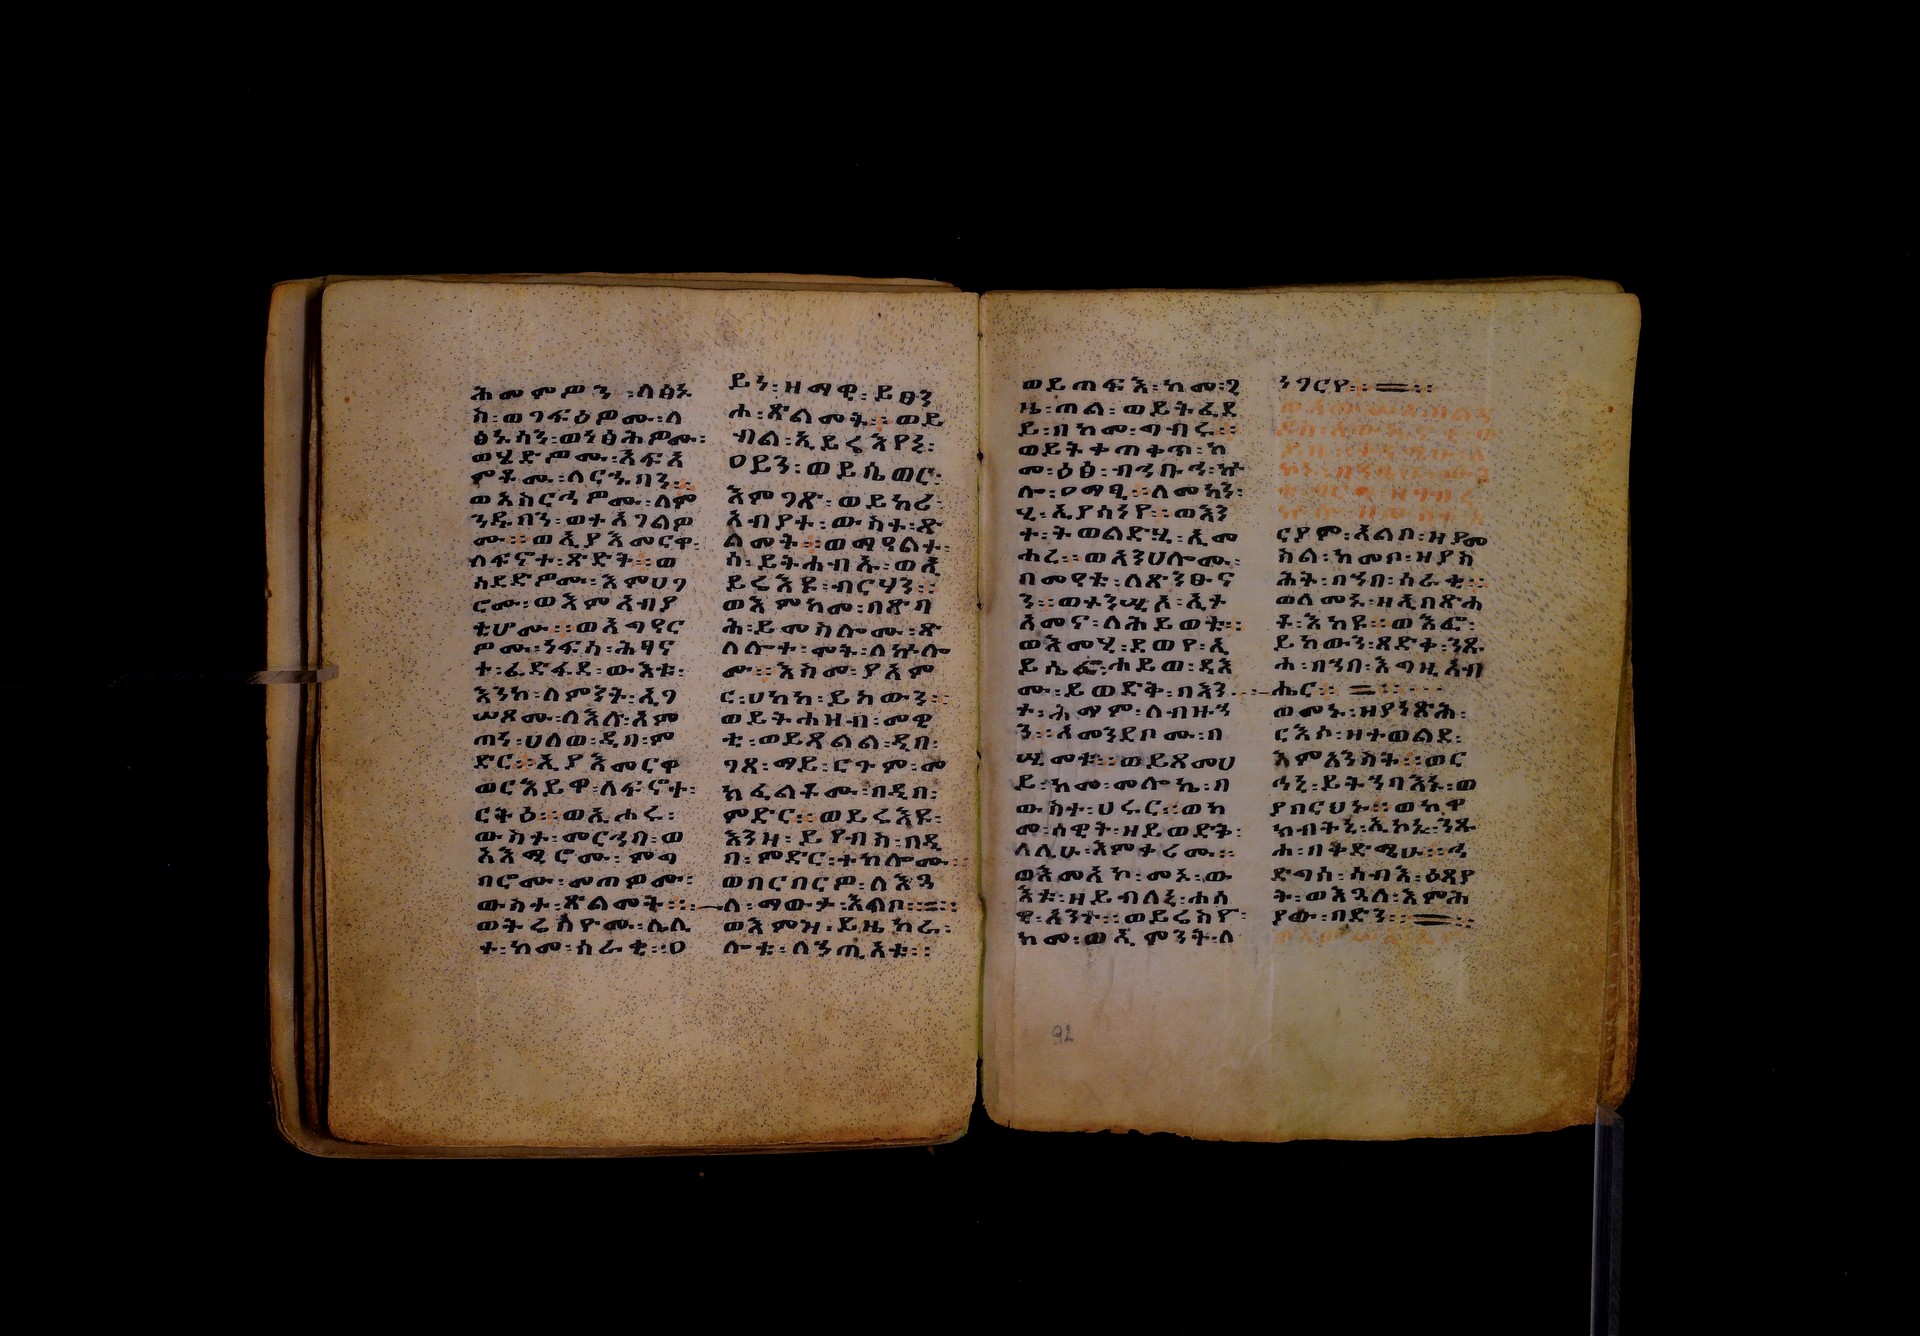 ሕመምዎን ፡ ለፅኑ
ስ ፡ ወገፍዕዎሙ ፡ ለ
ፅኑሳን ፡ ወነፅሕዎሙ ፡
ወሄድዎሙ ፡ እፍአ
ምቶሙ ፡ ለርኁባን ፡፡
ወአእርኀዎሙ ፡ ለም
ንዱባን ፡ ወተአገልዎ
ሙ ፡፡ ወኢያእመርዋ ፡
ለፍኖተ ፡ ጽድት ፡፡ ወ
አደድዎሙ ፡ እምሀገ
ሮሙ ፡ ወእምአብያ
ቲሆሙ ፡፡ ወአግዐር
ዎሙ ፡ ነፍሰ ፡ ሕፃና
ተ ፡ ፈድፋደ ፡ ውእቱ ፡
እንከ ፡ ለምንት ፡ ኢገ
ሠጾሙ ፡ ለእሉ ፡ እም
ጠነ ፡ ሀለወ ፡ ዲበ ፡ ም
ድር ፡፡ ኢያእመርዋ
ወርእይዋ ፡ ለፍኖተ ፡
ርትዕ ፡፡ ወኢሐሩ ፡
ውስተ ፡ መርኀባ ፡ ወ
አእሚሮሙ ፡ ምግ
ባሮሙ ፡ መጠዎሙ ፡
ውስተ ፡ ጽልመት ፡፡
ወትሬስዮሙ ፡ ሌሊ
ተ ፡ ከመ ፡ ሰራቂ ፡፡ ዐ
ይን ፡ ዘማዊ ፡ ይፀን
ሐ ፡ ጽልመት ፡፡ ወይ
ብል ፡ ኢይሬእየኒ ፡
ዐይን ፡ ወይሴወር ፡
እምገጽ ፡ ወይከሪ ፡
አብያተ ፡ ውስተ ፡ ጽ
ልመት ፡፡ ወማዕልተ ፡
ሰ ፡ ይትሐብኡ ፡ ወኢ
ይሬእዩ ፡ ብርሃነ ፡፡
ወእምከመ ፡ በጽባ
ሕ ፡ ይመስሎሙ ፡ ጽ
ላሎተ ፡ ሞት ፡ ለኵሎ
ሙ ፡፡ እስመ ፡ ያአም
ር ፡ ሀከከ ፡ ይከውን ፡፡
ወይትሐዘብ ፡ መዊ
ቲ ፡ ወይጼልል ፡ ዲበ ፡
ገጸ ፡ ማይ ፡ ርጉም ፡ መ
ክፈልቶሙ ፡ በዲበ ፡
ምድር ፡፡ ወይሬእዩ ፡
እንዘ ፡ ይየብስ ፡ በዲ
በ ፡ ምድር ፡ ተክሎሙ ፡፡
ወበርበርዎ ፡ ለእጓ
ለ ፡ ማውታ ፡ እልቦ ፡፡
ወእምዝ ፡ ይዜከራ ፡
ሎቱ ፡ ለኀጢአቱ ፡፡
ወይጠፍእ ፡ ከመ ፡ ጊ
ዜ ፡ ጠል ፡ ወይትፈደ
ይ ፡ በከመ ፡ ግብሩ ፡፡
ወይትቀጠቀጥ ፡ ከ
መ ፡ ዕፅ ፡ ብኁቡኀ ፡ ኵ
ሎ ፡ ዐማፂ ፡፡ ለመካን ፡
ሂ ፡ ኢያሰነየ ፡፡ ወእን
ተ ፡ ትወልድሂ ፡ ኢመ
ሐረ ፡፡ ወአንሀሎሙ ፡
በመዐቱ ፡ ለጽንፁና
ን ፡፡ ወተንሢአ ፡ ኢት
አመና ፡ ለሕይወቱ ፡፡
ወእመሂ ፡ ደወየ ፡ ኢ
ይሴፎ ፡ ሐይወ ፡ ዳእ
ሙ ፡ ይወድቅ ፡ በእን
ተ ፡ ሕማም ፡ ለብዙኀ
ን ፡፡ አመንደቦሙ ፡ በ
ሢመቱ ፡፡ ወይጸመሀ
ይ ፡ ከመ ፡ መሎኬ ፡ በ
ውስተ ፡ ሀሩር ፡፡ ወከ
መ ፡ ሰዊት ፡ ዘይወድቅ ፡
ለሊሁ ፡ እምቀሪሙ ፡፡
ወእመአኮ ፡ መኑ ፡ ው
እቱ ፡ ዘይብለኒ ፡ ሐሰ
ዊ ፡ አንተ ፡፡ ወይሬስዮ ፡
ከመ ፡ ወኢምንት ፡ ለ
ነገርየ ፡፡
ርያም ፡ አልቦ ፡ ዘያመ
ስል ፡ ከመቦ ፡ ዘያስ
ሕት ፡ በኀበ ፡ ሰራቂ ፡፡
ወለመኑ ፡ ዘኢበጽሐ
ቶ ፡ እከዩ ፡፡ ወእፎ ፡
ይከውን ፡ ጻድቀ ፡ ንጹ
ሐ ፡ በኀበ ፡ እግዚአብ
ሔር ፡፡
ወመኑ ፡ ዘያነጽሕ ፡
ርእሶ ፡ ዘተወልደ ፡
እምአንስት ፡፡ ወር
ኅኒ ፡ ይትኀባእኑ ፡ ወ
ያበርህኑ ፡፡ ወከዋ
ክብትኒ ፡ ኢኮኑ ፡ ንጹ
ሐ ፡ በቅድሜሁ ፡፡ ኀ
ድግሰ ፡ ሰብእ ፡ ዕጹያ
ት ፡ ወእጓለ ፡ እምሕ
ያው ፡ በድን ፡፡
92